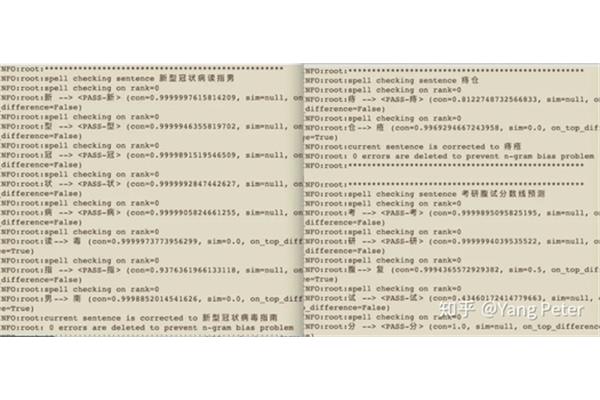 NFO:root:**************************************************
NFO:root:spell checking sentence 新型冠状病读指男
NFO:root:spell checking on rank=0
NFO:root:新 --> <PASS-新> (con=0.9999997615814209, sim=null, on
_difference=False)
NFO:root:spell checking on rank=0
NFO:root:型 --> <PASS-型> (con=0.9999946355819702, sim=null, on
difference=False)
NFO:root:spell checking on rank=0
NFO:root:冠 --> <PASS-冠> (con=0.9999891519546509, sim=null, on
difference=False)
NFO:root:spell checking on rank=0
NFO:root:状 --> <PASS-状> (con=0.9999992847442627, sim=null, on
difference=False)
NFO:root:spell checking on rank=0
NFO:root:病 --> <PASS-病> (con=0.9999905824661255, sim=null, on
difference=False)
NFO:root:spell checking on rank=0
NFO:root:读--> 毒 (con=0.9999973773956299, sim=0.0, on_top_diff
e=True)
NFO:root:spell checking on rank=0
NFO:root:指 --> <PASS-指> (con=0.9376361966133118, sim=null, on
difference=False)
NFO:root:spell checking on rank=0
NFO:root:男--> 南 (con=0.9998852014541626, sim=0.0, on_top_diff
e=True)
NFO:root:current sentence is corrected to 新型冠状病毒指南
NFO:root: 0 errors are deleted to prevent n-gram bias problem
NFO:root:**************************************************
NFO:root:spell checking sentence 痔仓
NFO:root:spell checking on rank=0
NFO:root:痔 --> <PASS-痔> (con=0.8122748732566833, sim=null, on
difference=False)
NFO:root:spell checking on rank=0
NFO:root:仓--> 疮 (con=0.9969294667243958, sim=0.0, on_top_diff
e=True)
NFO:root:current sentence is corrected to 痔疮
NFO:root: 0 errors are deleted to prevent n-gram bias problem
NFO:root:**************************************************
NFO:root:**************************************************
NFO:root:spell checking sentence 考研腹试分数线预测
NFO:root:spell checking on rank=0
NFO:root:考 --> <PASS-考> (con=0.9999895095825195, sim=null, on
difference=False)
NFO:root:spell checking on rank=0
NFO:root:研 --> <PASS-研> (con=0.9999994039535522, sim=null, on
difference=False)
NFO:root:spell checking on rank=0
NFO:root:腹--> 复 (con=0.9994365572929382, sim=0.5, on_top_diff
e=True)
NFO:root:spell checking on rank=0
NFO:root:试 --> <PASS-试> (con=0.43460172414779663, sim=null, o
difference=False)
NFO:root:spell checking on rank=0
NFO:root:分 --> <PASS-分> (con=1.0, sim=null, on_top_difference
e=False)
知乎 @Yang Peter